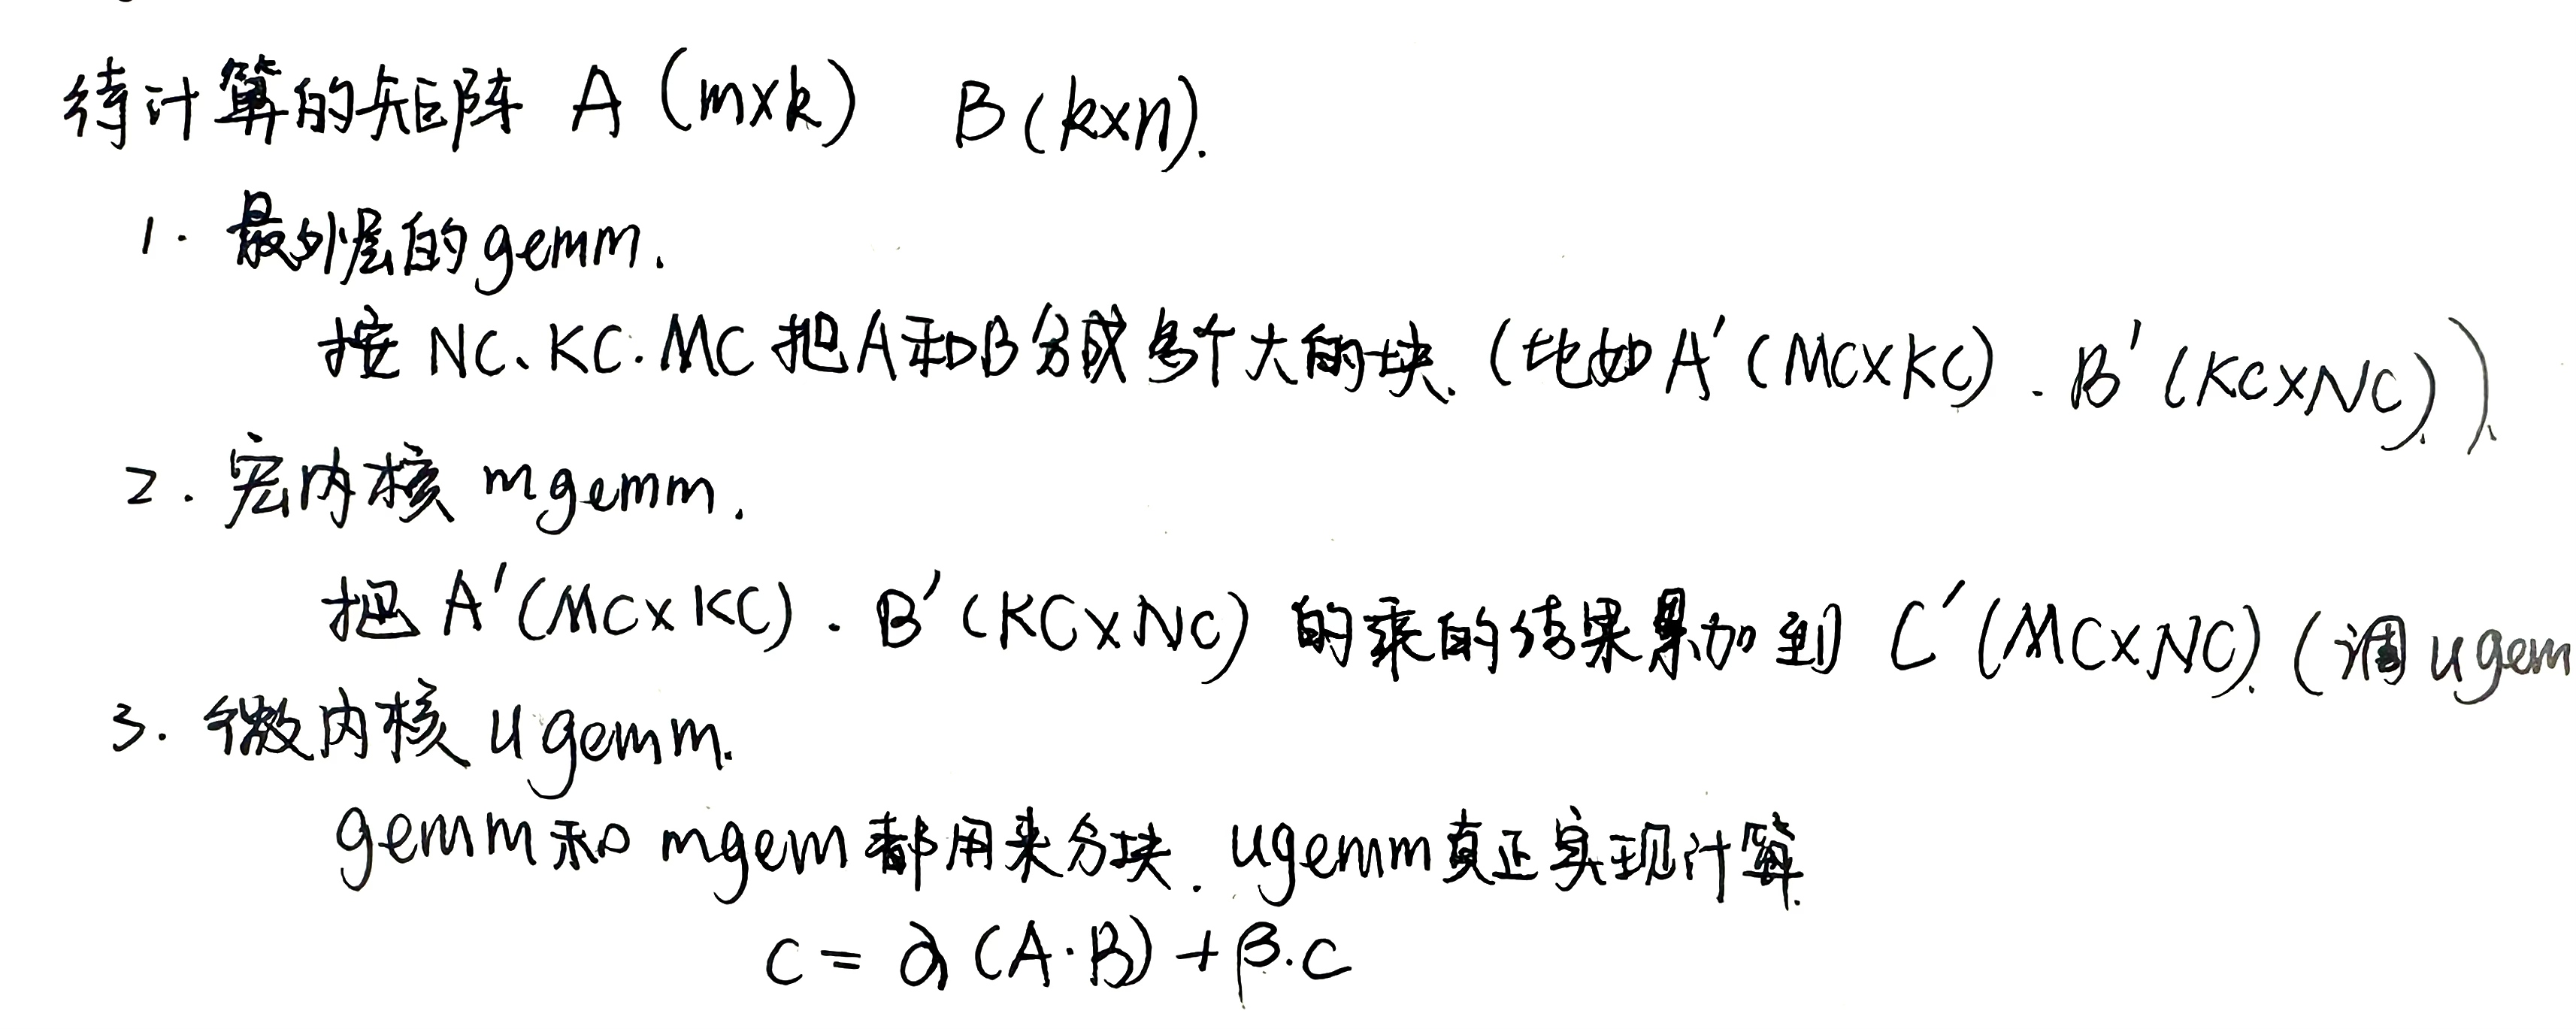 待计算的矩阵 A (m×k) B (k×n).
1. 最外层的gemm.
按 NC、KC、MC 把A和B分成多个大的块. (比如A′(MC×KC) . B′(KC×NC)).
2. 宏内核 mgemm.
把 A′(MC×KC) . B′(KC×NC) 的乘的结果累加到 C′(MC×NC). (调ugem
3. 微内核 ugemm.
gemm和 mgem都用来分块. ugemm真正实现计算.
C = α (A·B) + β·C